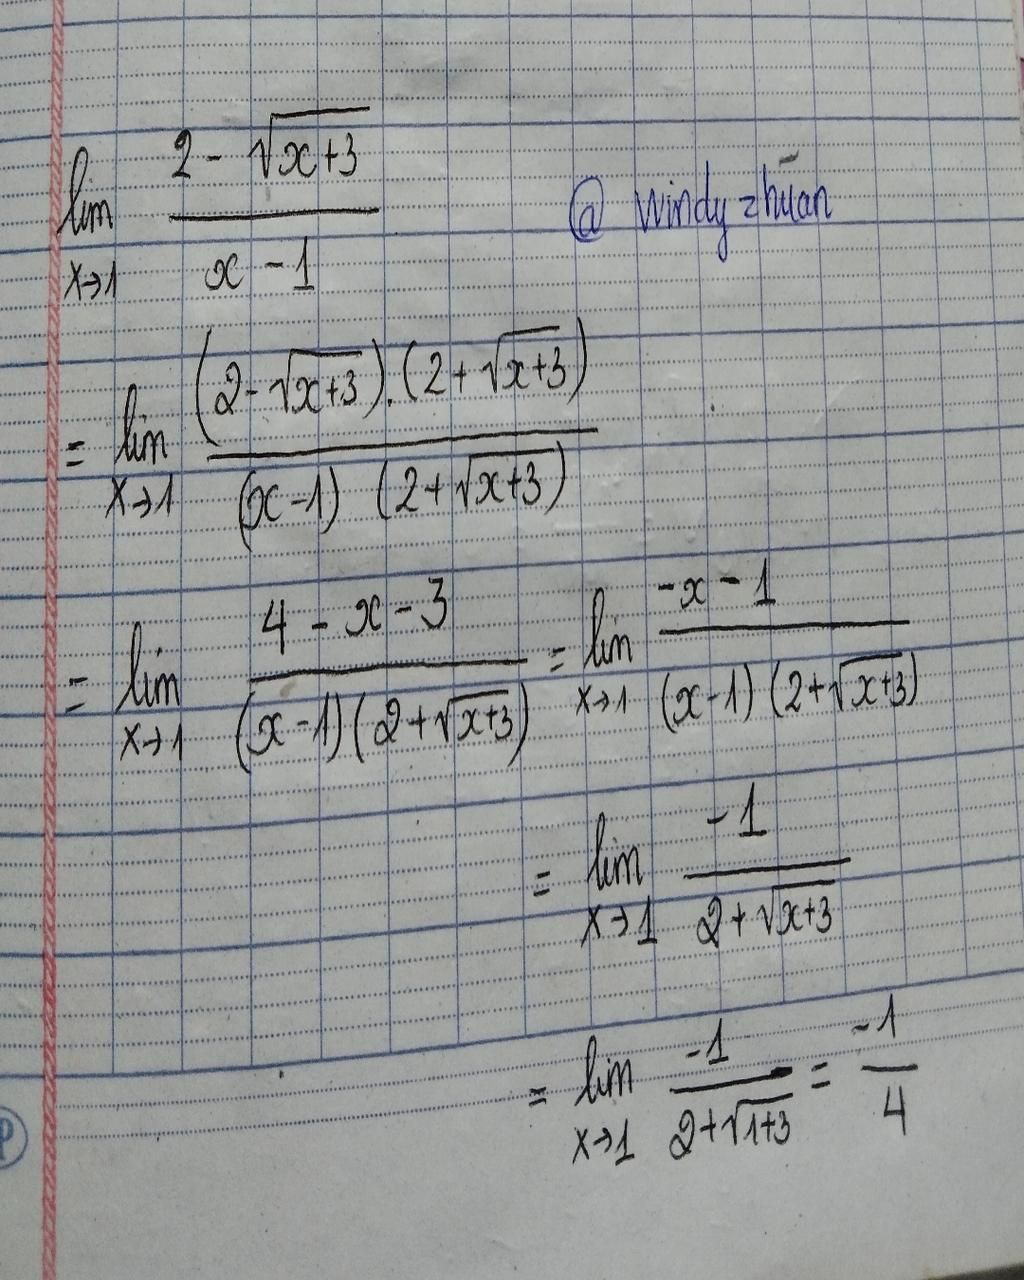 lim x→1 (2 - √(x+3)) / (x - 1)
@ windyzhuan
= lim x→1 ((2 - √(x+3)).(2 + √(x+3))) / ((x-1) (2 + √(x+3)))
= lim x→1 (4 - x - 3) / ((x-1)(2 + √(x+3))) = lim x→1 (-x - 1) / ((x-1)(2 + √(x+3)))
= lim x→1 -1 / (2 + √(x+3))
= lim x→1 -1 / (2 + √(1+3)) = -1 / 4